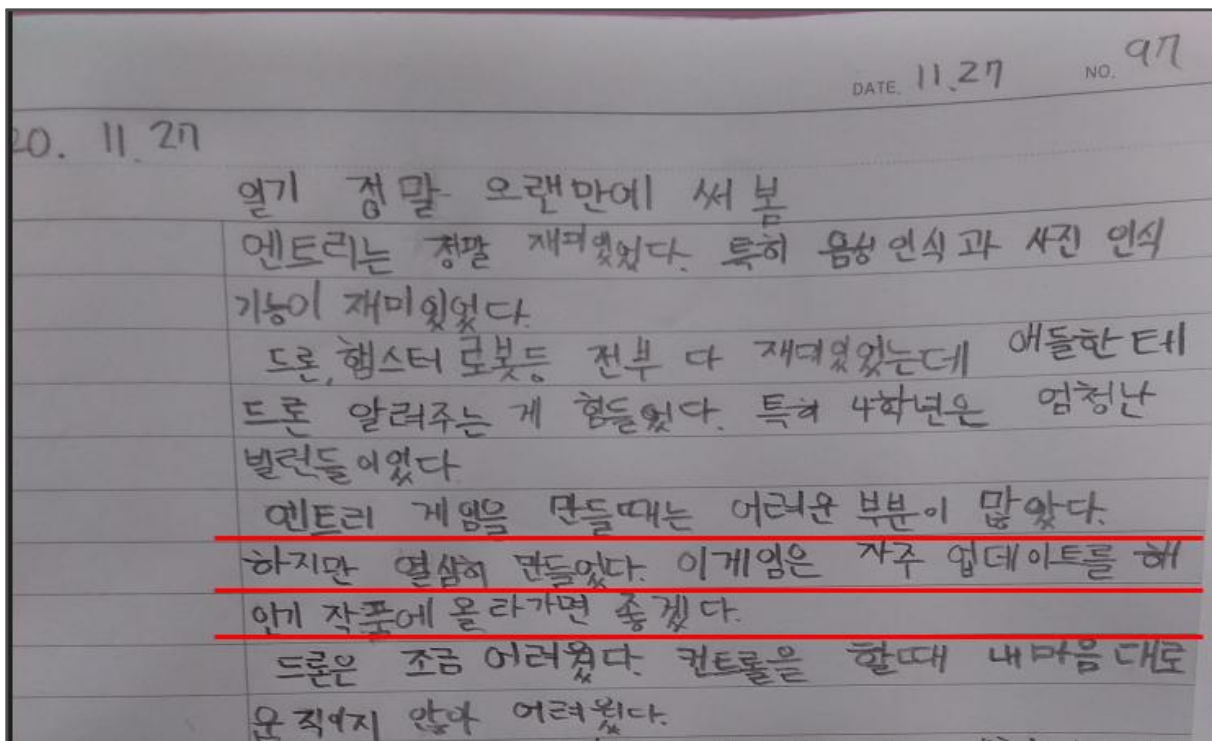 DATE. 11.27 NO. 97
20. 11.27
일기 정말 오랜만에 써 봄
엔트리는 정말 재미있었다. 특히 음성 인식과 사진 인식
기능이 재미있었다.
드론, 햄스터 로봇등 전부 다 재미있었는데 애들한테
드론 알려주는 게 힘들었다. 특히 4학년은 엄청난
빌런들이었다
엔트리 게임을 만들때는 어려운 부분이 많았다.
하지만 열심히 만들었다. 이게임은 자주 업데이트를 해
인기 작품에 올라가면 좋겠다.
드론은 조금 어려웠다. 컨트롤을 할때 내마음대로
움직이지 않아 어려웠다.